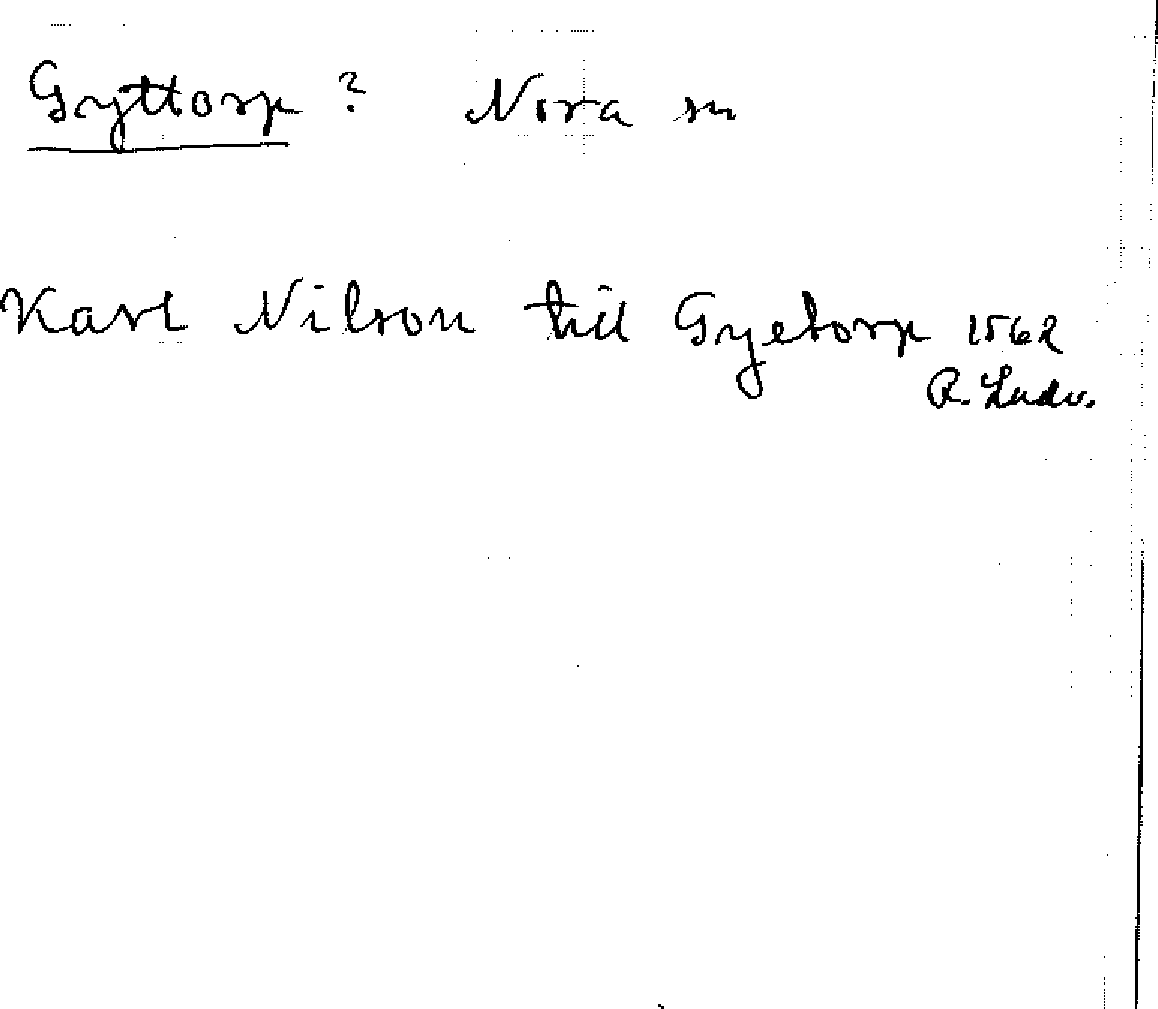 Gyttorp ? Nora sn
Karl Nilson till Gyetorp 1562
R. Ludv.